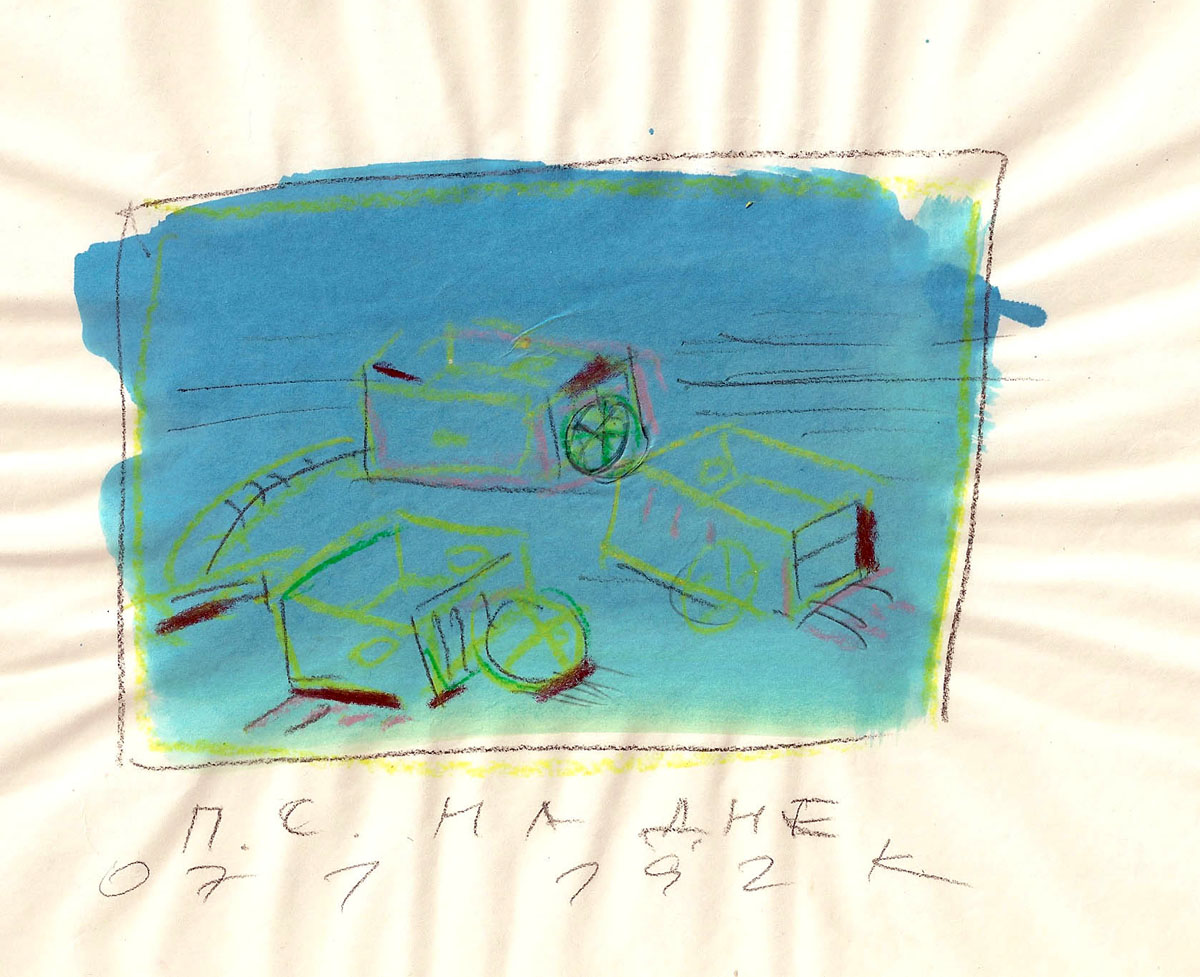 П. С. НА ДНЕ
07 1 192 К